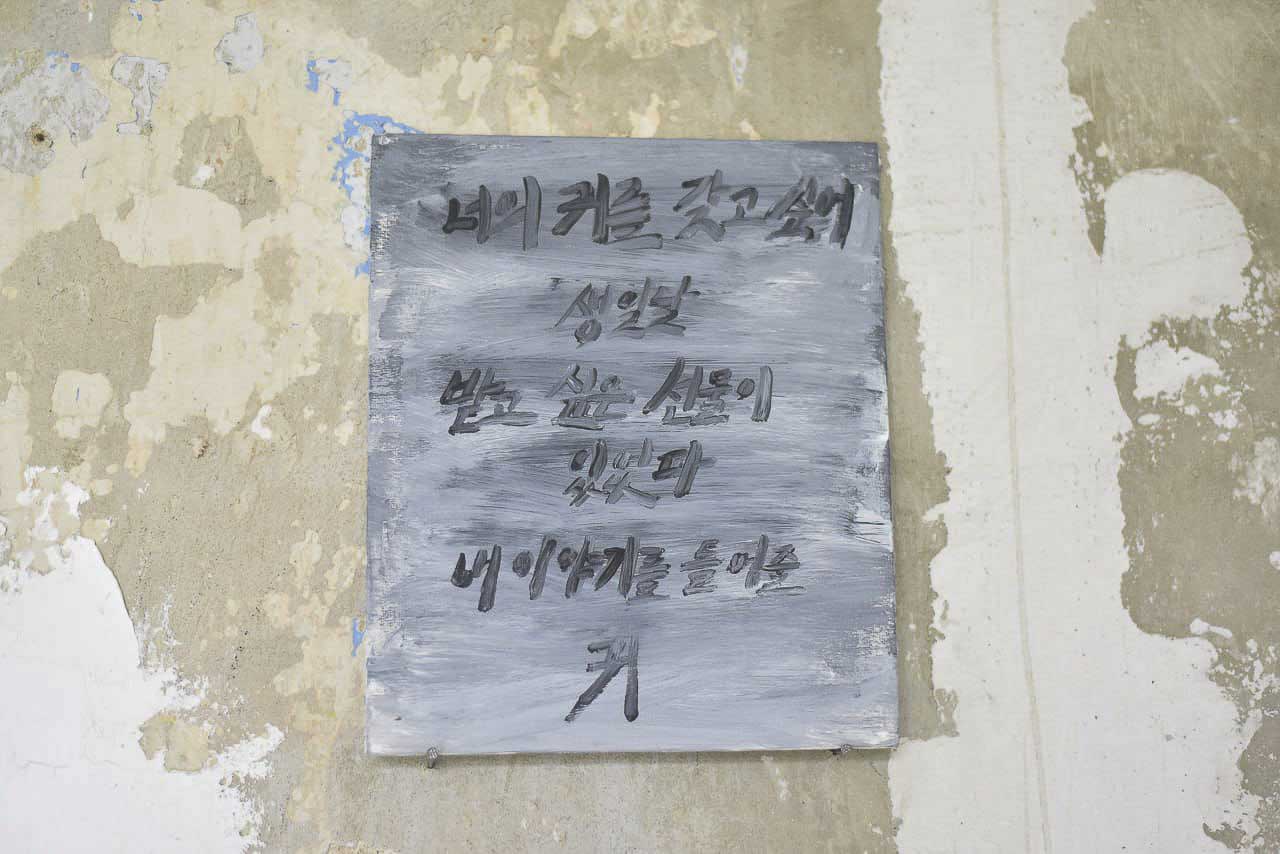 너의 귀를 갖고 싶어
생일날
받고 싶은 선물이
있었다
내 이야기를 들어줄
귀